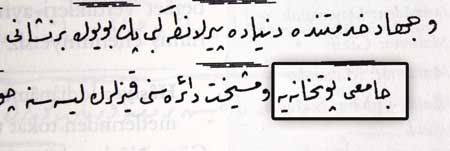 و جهاد خدمتنده دنیاده بیر لو نظر کی پك بویوك بر نشانی
جامعی پوتخانه یه و مشیخت دائره سنی قیزلرك لیسه سنه چو